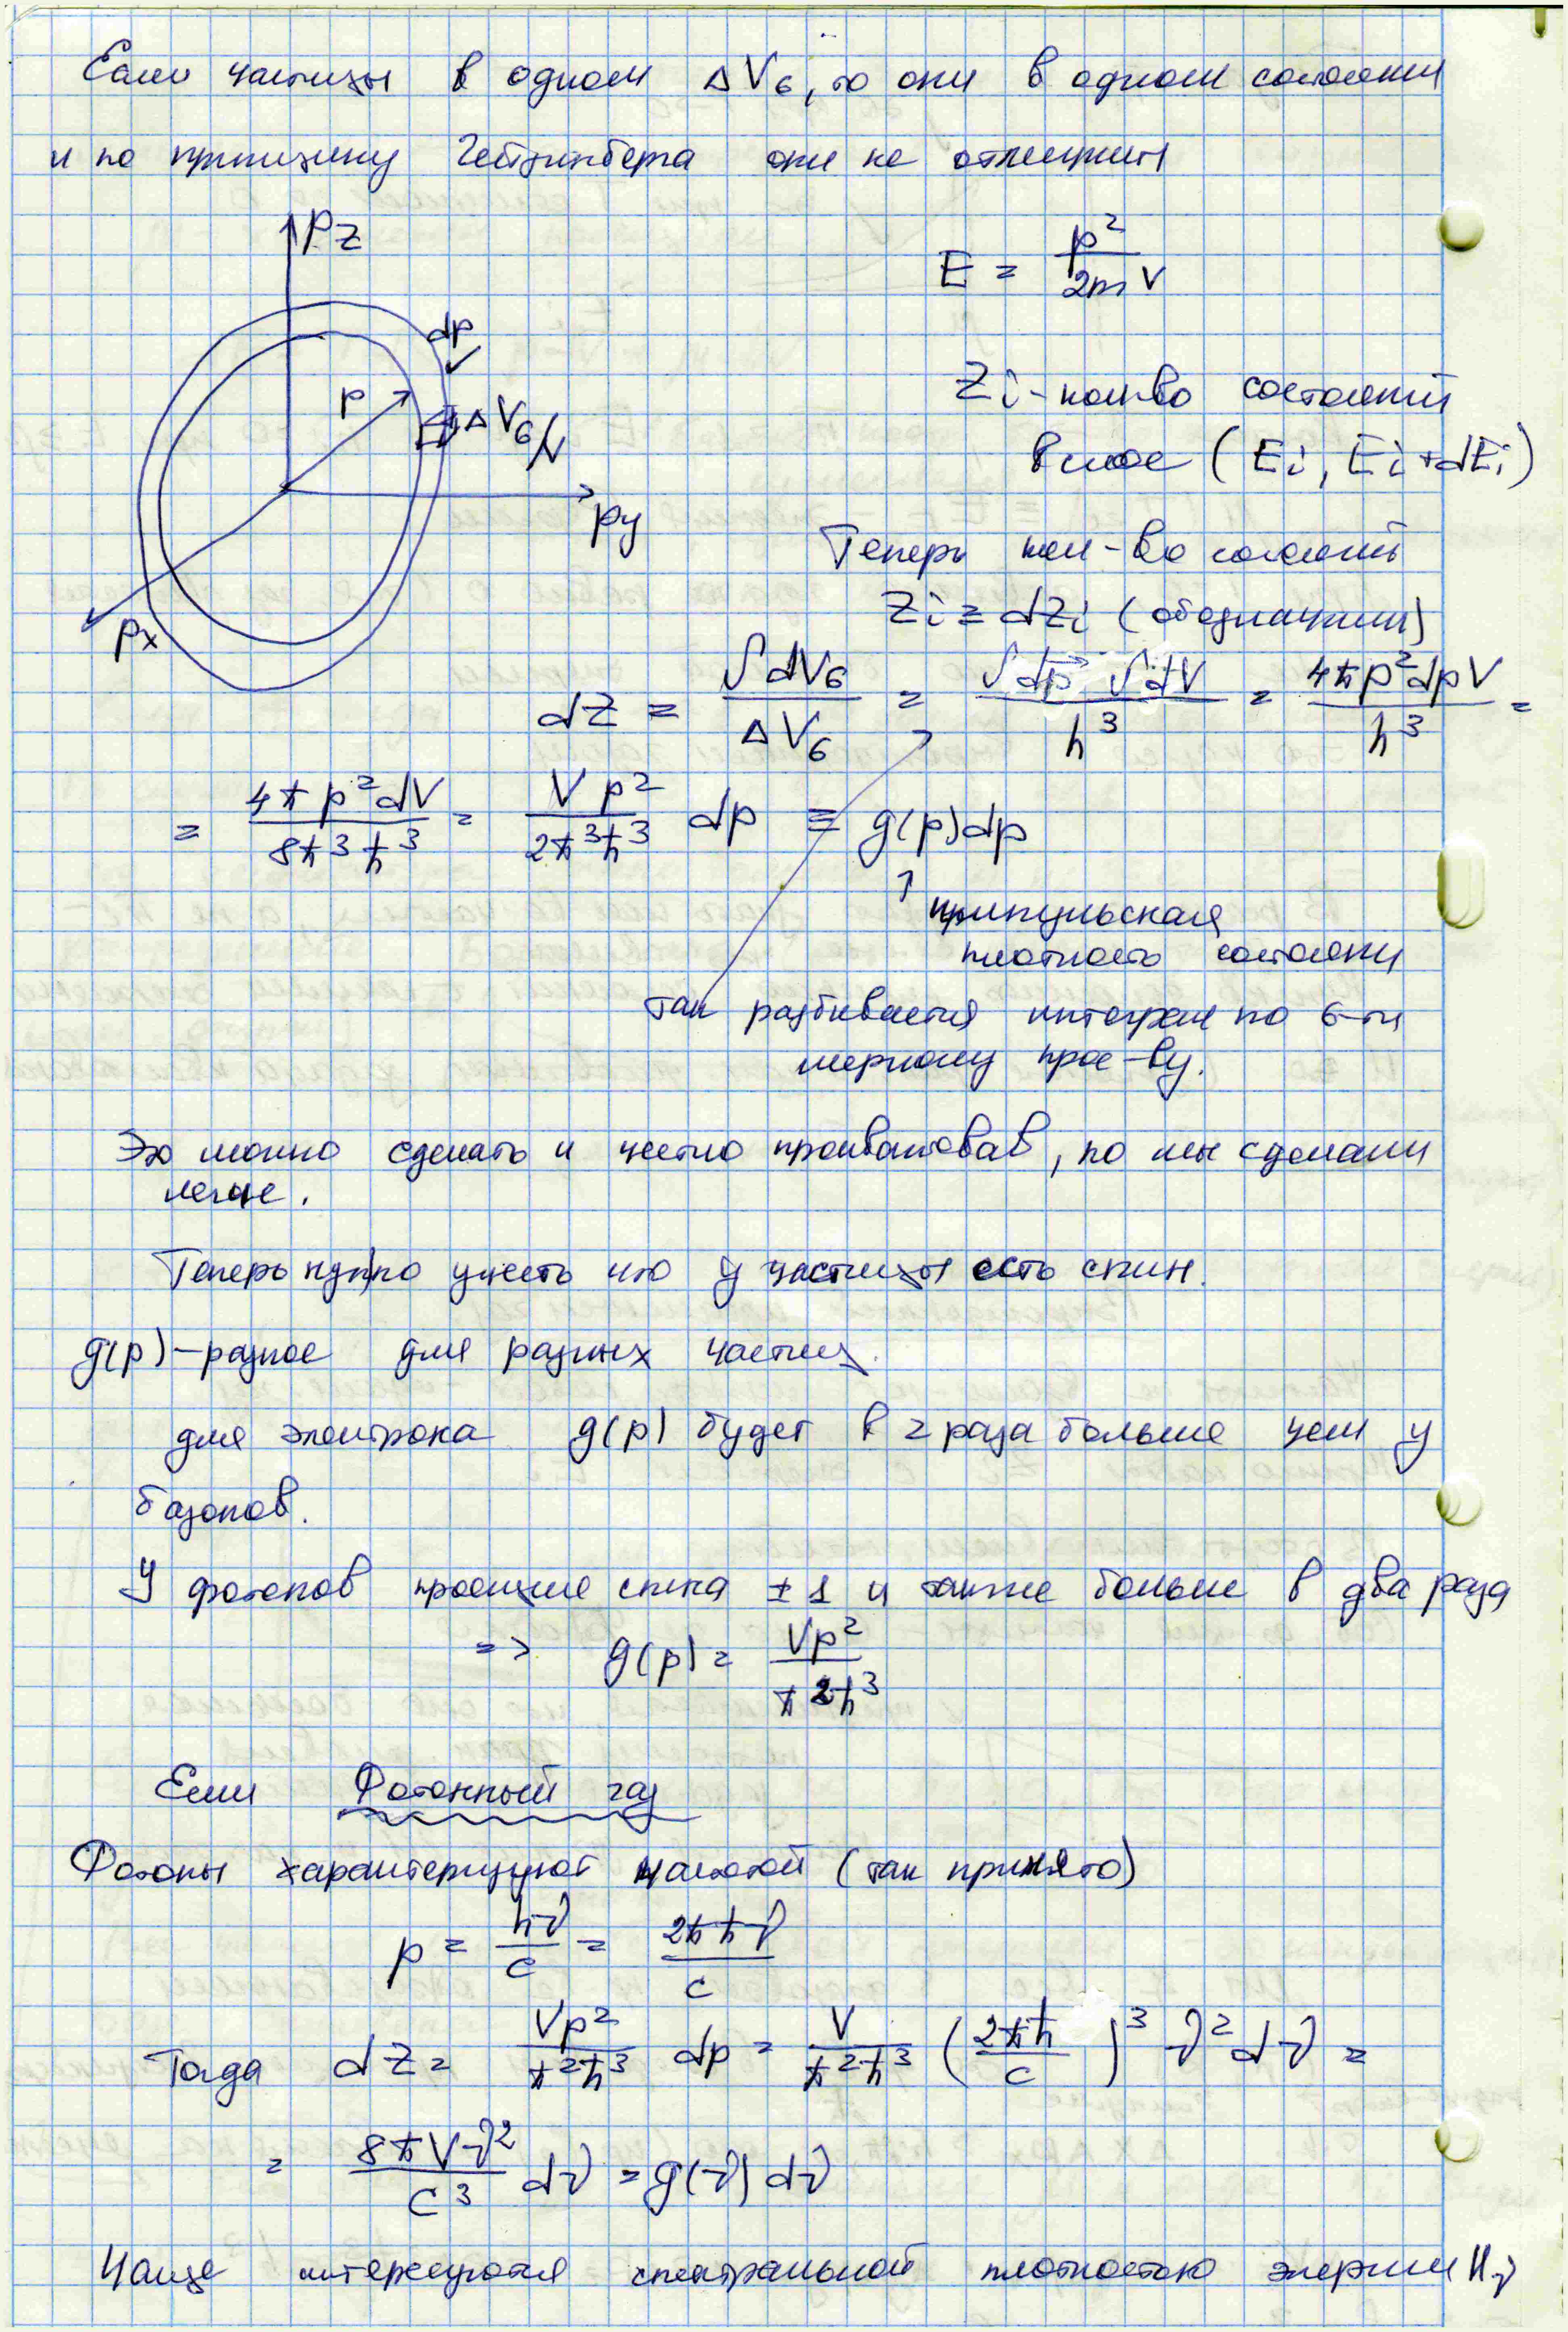 Если частицы в одном ΔV₆, то они в одном состоянии
и по принципу Гейзинберга они не отличимы
pz
E = p²/2m V
dp
p
ΔV₆/V
Zi - кол-во состояний
в слое (Ei, Ei+dEi)
py
Теперь кол-во состояний
px
Zi ≡ dZi (обозначим)
dZ = ∫dV₆/ΔV₆ = ∫dp⃗ ∫dV/h³ = 4πp²dpV/h³ =
= 4πp²dV/8π³ħ³ = Vp²/2π³ħ³ dp ≡ g(p)dp
импульсная
плотность состояни
так разбивается интеграл по 6-ти
мерному прос-ву.
Это можно сделать и честно проквантовав, но мы сделали
легче.
Теперь нужно учесть что у частицы есть спин.
g(p) - разное для разных частиц.
для электрона g(p) будет в 2 раза больше чем у
базонов.
У фотонов проекции спина ±1 и также больше в два раза
=> g(p) = Vp²/π²ħ³
Если Фотонный газ
Фотоны характеризуют частотой (так принято)
p = hν/c = 2πħν/c
Тогда dZ = Vp²/π²ħ³ dp = V/π²ħ³ (2πħ/c)³ ν²dν =
= 8πVν²/c³ dν = g(ν)dν
Чаще интересуются спектральной плотностью энергии Uν